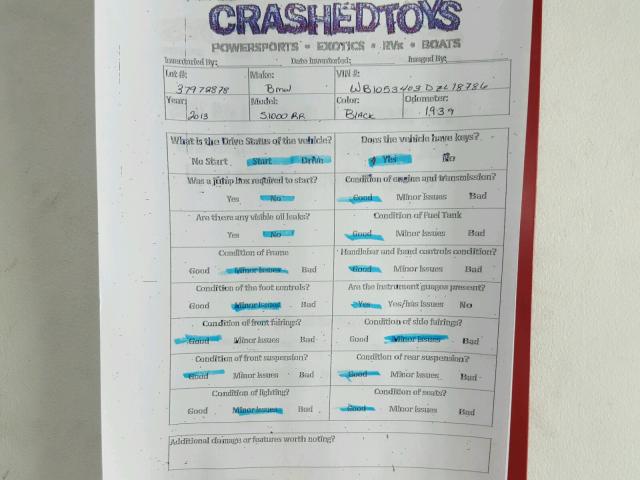 CRASHEDTOYS
POWERSPORTS • EXOTICS • RVs • BOATS
Inventoried By: Date Inventoried: Imaged By:
Lot #: Make: VIN #:
37978878 Bmw WB1053403DZL78786
Year: Model: Color: Odometer:
2013 S1000 RR BLACK 1939
What is the Drive Status of the vehicle? Does the vehicle have keys?
No Start Start Drive Yes No
Was a jump box required to start? Condition of engine and transmission?
Yes No Good Minor Issues Bad
Are there any visible oil leaks? Condition of Fuel Tank
Yes No Good Minor Issues Bad
Condition of Frame Handlebar and hand controls condition?
Good Minor Issues Bad Good Minor Issues Bad
Condition of the foot controls? Are the instrument guages present?
Good Minor Issues Bad Yes Yes/has Issues No
Condition of front fairings? Condition of side fairings?
Good Minor Issues Bad Good Minor Issues Bad
Condition of front suspension? Condition of rear suspension?
Good Minor Issues Bad Good Minor Issues Bad
Condition of lighting? Condition of seats?
Good Minor Issues Bad Good Minor Issues Bad
Additional damage or features worth noting?